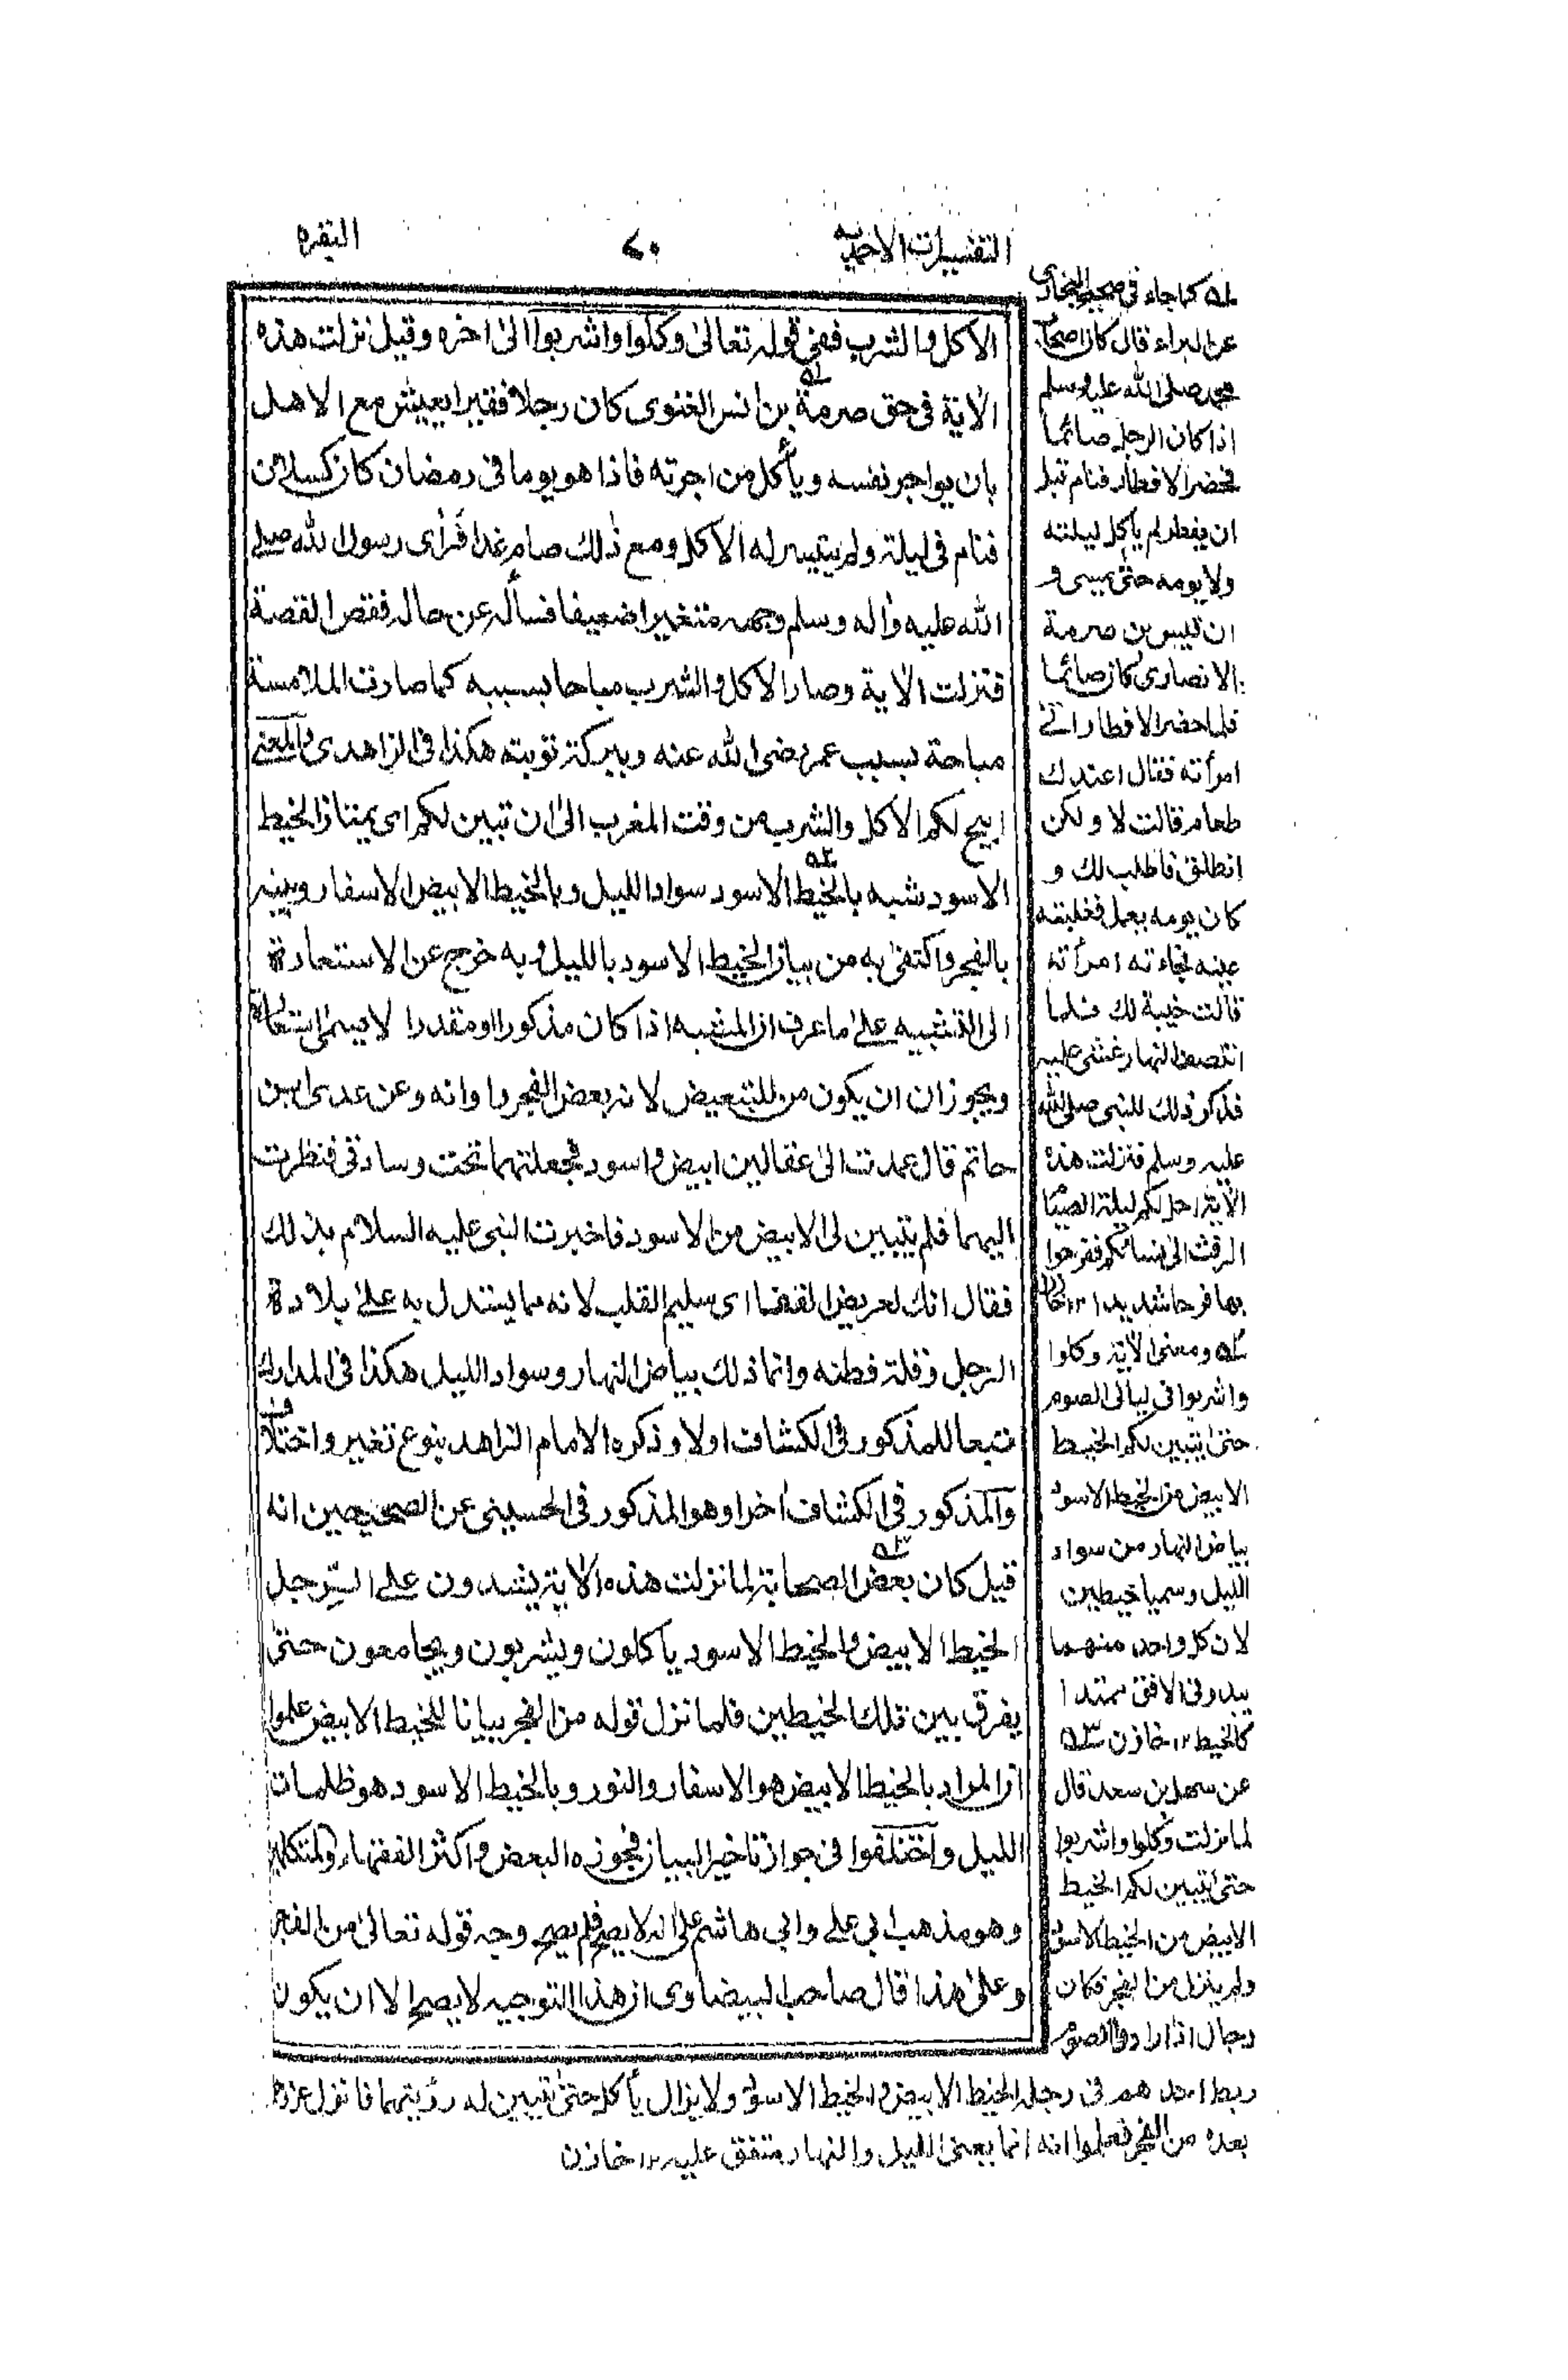 التفسيرات الاحمديه
٧٠
البقره
الاكل والشرب ففى قوله تعالىٰ وكلوا واشربوا الىٰ اخره وقيل نزلت هذه
الاٰية فى حق صرمة بن انس الغنوى كان رجلا فقيرا يعيش مع الاهل
بان يواجر نفسه ويأكل من اجرته فاذا هو يوما فى رمضان كان كسلان
فنام فى ليلة ولم يتيسر له الاكل ومع ذٰلك صام غدا فرأى رسول الله صلے
الله عليه واٰله وسلم وجهه متغيرا ضعيفا فسأله عن حاله فقص القصة
فنزلت الاٰية وصار الاكل والشرب مباحا بسببه كما صارت الملامسة
مباحة بسبب عمر رضى الله عنه وببركة توبته هكذا فى الزاهدى والمعنے
ابيح لكم الاكل والشرب من وقت المغرب الىٰ ان تبين لكم اى يمتاز الخيط
الاسود شبه بالخيط الاسود سواد الليل وبالخيط الابيض الاسفار وبينه
بالفجر واكتفىٰ به من بيان الخيط الاسود بالليل وبه خرج عن الاستعارة
الى التشبيه علےٰ ما عرف ان المشبه اذا كان مذكورا او مقدرا لا يسمىٰ استعارة
ويجوز ان ان يكون من للتبعيض لانه بعض الفجر واوانه وعن عدى بن
حاتم قال عمدت الىٰ عقالين ابيض واسود فجعلتهما تحت وسادتى فنظرت
اليهما فلم يتبين لى الابيض من الاسود فاخبرت النبى عليه السلام بذلك
فقال انك لعريض القفا اى سليم القلب لانه مما يستدل به علےٰ بلادة
الرجل وقلة فطنه وانما ذلك بياض النهار وسواد الليل هكذا فى المدارك
تبعا للمذكور فى الكشاف اولا وذكره الامام الزاهد بنوع تغير واختلاف
والمذكور فى الكشاف اٰخرا وهو المذكور فى الحسينى عن الصحيحين انه
قيل كان بعض الصحابة لما نزلت هذه الاٰية يشدون علے الرجل
الخيط الابيض والخيط الاسود ياكلون ويشربون ويجامعون حتىٰ
يفرق بين تلك الخيطين فلما نزل قوله من الفجر بيانا للخيط الابيض علموا
ان المراد بالخيط الابيض هو الاسفار والنور وبالخيط الاسود هو ظلمات
الليل واختلفوا فى جواز تاخير البيان فجوزه البعض واكثر الفقهاء والمتكلم
وهو مذهب ابى على وابى هاشم علىٰ انه لا يصح فلم يصح وجه قوله تعالىٰ من الفجر
وعلىٰ هذا قال صاحب البيضاوى ان هذا التوجيه لا يصح الا ان يكون
له كما جاء فى صحيح البخارى
عن البراء قال كان اصحاب
محمد صلى الله عليه وسلم
اذا كان الرجل صائما
فحضر الافطار فنام قبل
ان يفطر لم ياكل ليلته
ولا يومه حتىٰ يمسى و
ان قيس بن صرمة
الانصارى كان صائما
فلما حضر الافطار اتىٰ
امرأته فقال اعندك
طعام قالت لا ولكن
انطلق فاطلب لك و
كان يومه يعمل فغلبته
عينه فجاءته امرأته
قالت خيبة لك فلما
انتصف النهار غشى عليه
فذكر ذلك للنبى صلى الله
عليه وسلم فنزلت هذه
الاٰية احل لكم ليلة الصيام
الرفث الى نسائكم ففرحوا
بها فرحا شديدا ١٢ بخارى
٢ه ومعنى الاٰية وكلوا
واشربوا فى ليالى الصوم
حتىٰ يتبين لكم الخيط
الابيض من الخيط الاسود
بياض النهار من سواد
الليل وسميا خيطين
لان كل واحد منهما
يبدو فى الافق ممتدا
كالخيط ١٢ خازن ٣ه
عن سهل بن سعد قال
لما نزلت وكلوا واشربوا
حتىٰ يتبين لكم الخيط
الابيض من الخيط الاسود
ولم ينزل من الفجر فكان
رجال اذا ارادوا الصوم
ربط احدهم فى رجله الخيط الابيض والخيط الاسود ولا يزال يأكل حتىٰ يتبين له رؤيتهما فانزل عزوجل
بعده من الفجر فعلموا انه انما يعنى الليل والنهار متفق عليه ١٢ خازن